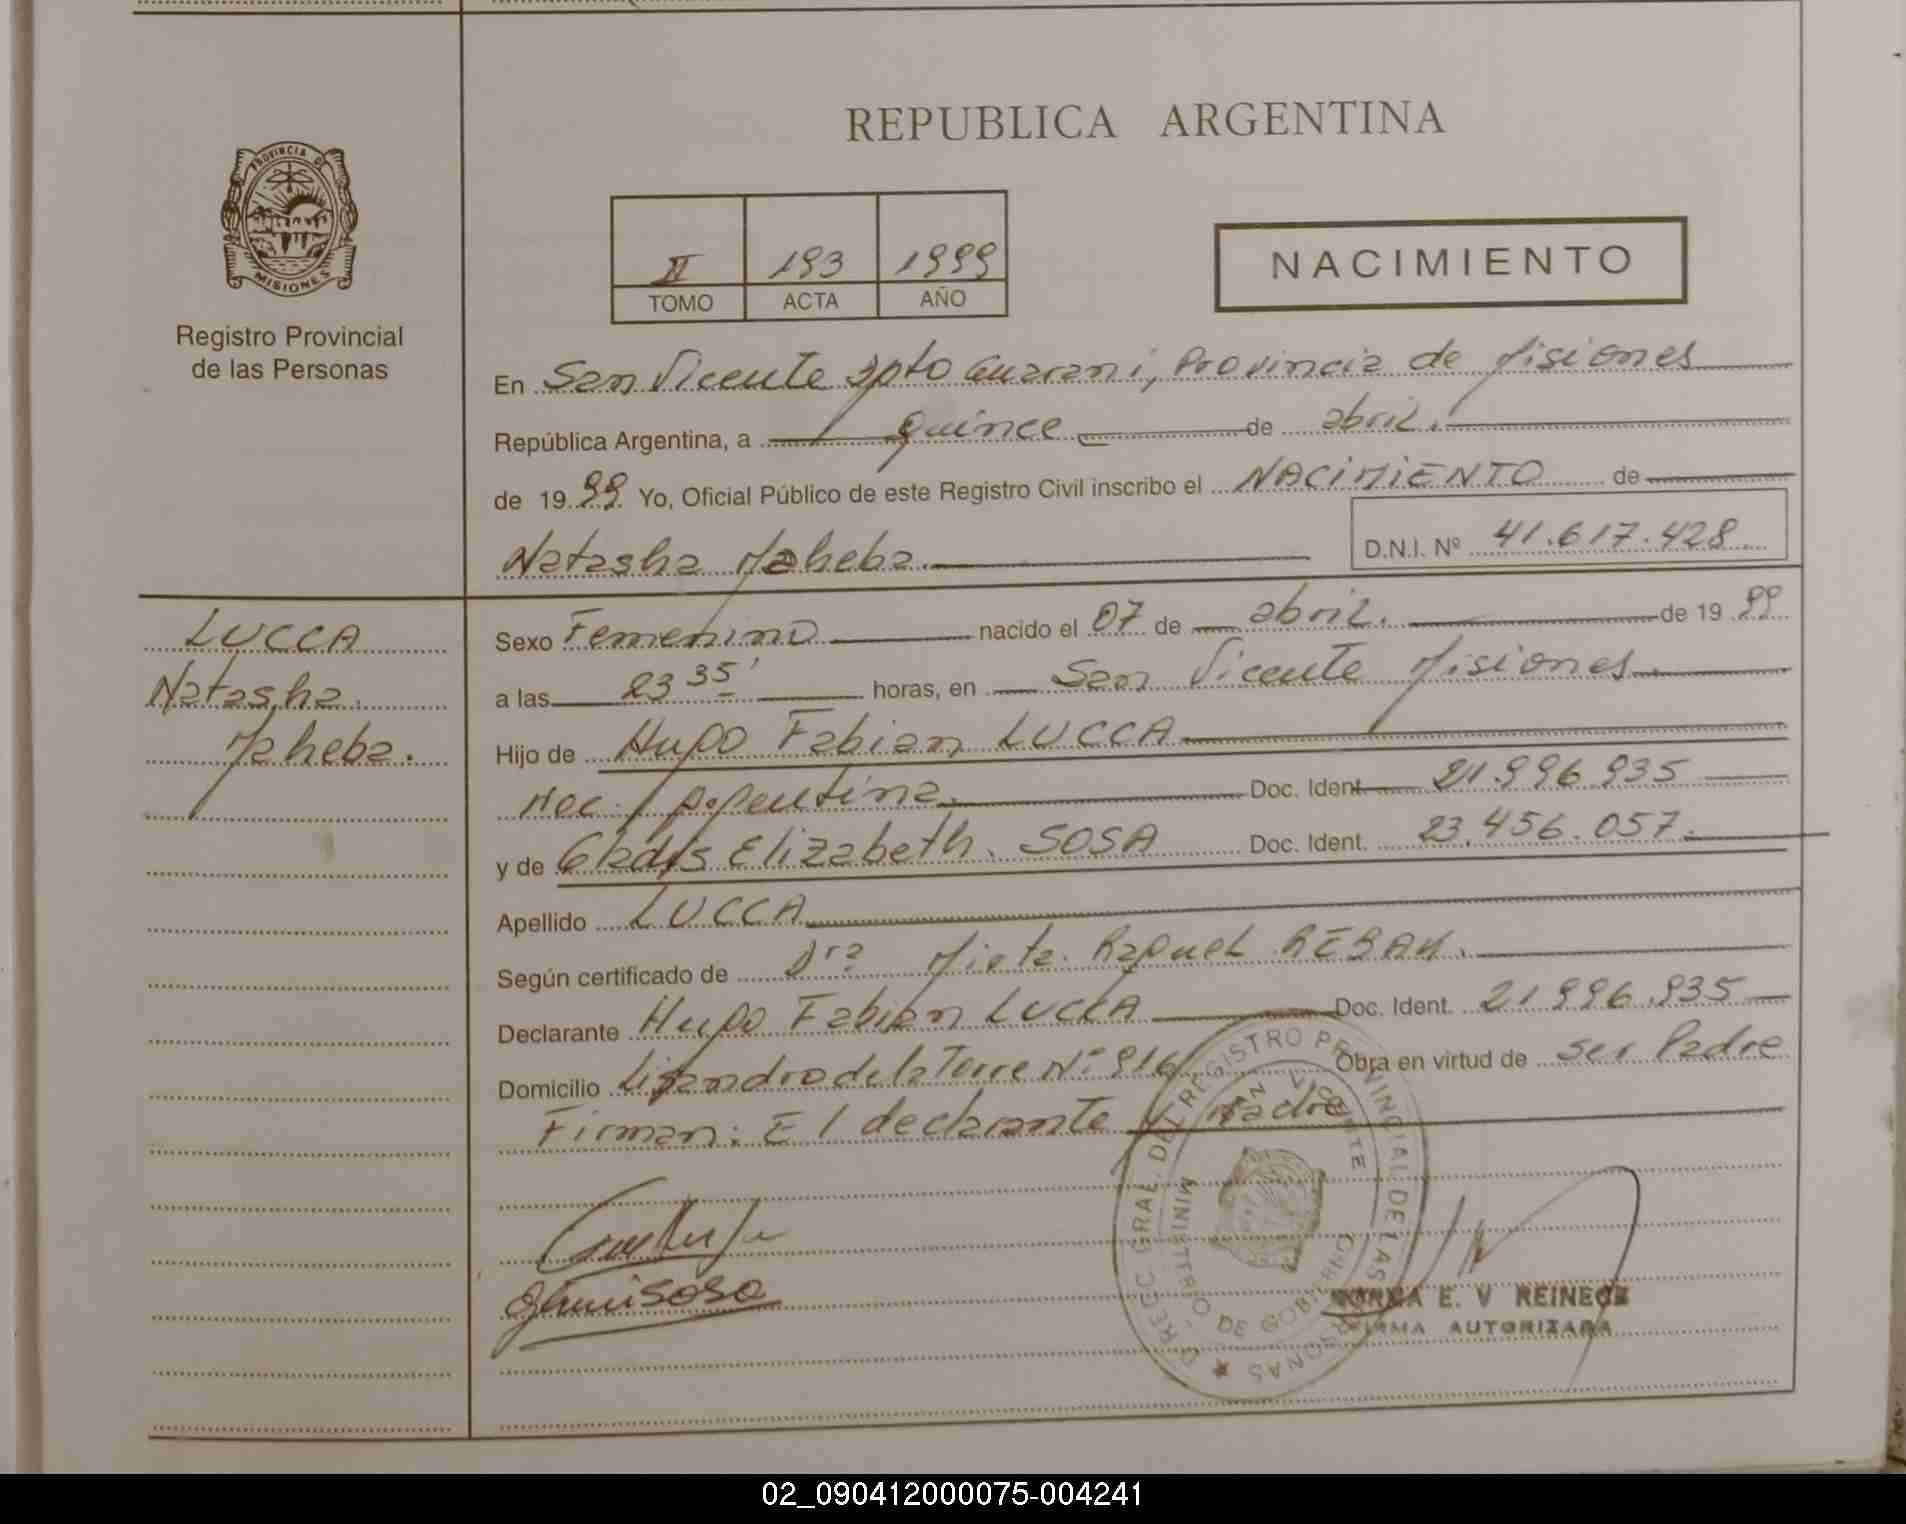 PROVINCIA DE
MISIONES
Registro Provincial
de las Personas
REPUBLICA ARGENTINA
II 193 1999
TOMO ACTA AÑO
NACIMIENTO
En San Vicente Dpto Guarani, Provincia de Misiones
República Argentina, a quince de abril.
de 1999 Yo, Oficial Público de este Registro Civil inscribo el NACIMIENTO de
Natasha Maheba. D.N.I. Nº 41.617.428
LUCCA
Natasha
Maheba.
Sexo Femenino nacido el 07 de abril. de 1999
a las 23 35' horas, en San Vicente Misiones.
Hijo de Hugo Fabian LUCCA
Nac. Argentina. Doc. Ident 21.996.935
y de Gladys Elizabeth. SOSA Doc. Ident. 23.456.057.
Apellido LUCCA
Según certificado de Dra Mirta. Raquel
Declarante Hugo Fabian LUCCA Doc. Ident. 21.996.935
Domicilio Lisandro de la Torre Nº 916 Obra en virtud de ser Padre
Firman: El declarante y Madre
DIRECC. GRAL. DEL REGISTRO PROVINCIAL DE LAS PERSONAS
SAN VICENTE
MINISTERIO DE GOBIERNO
NORMA E. V REINECK
FIRMA AUTORIZADA
02_090412000075-004241